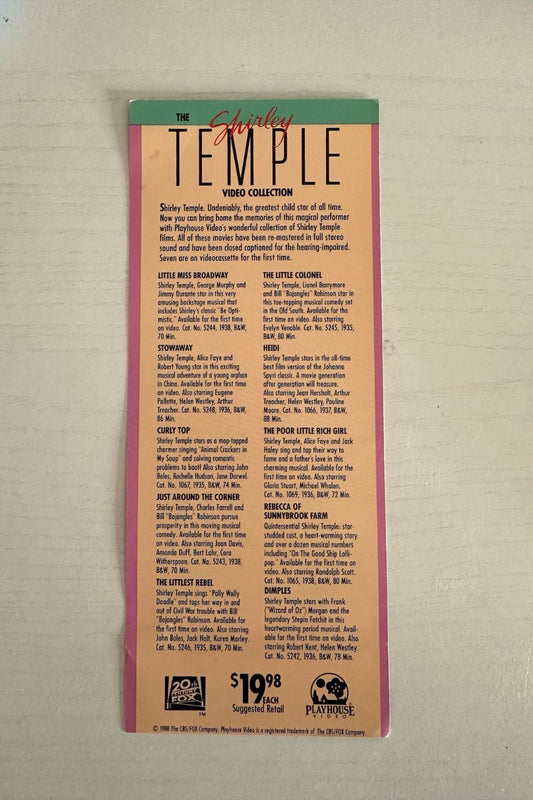 THE
Shirley
TEMPLE
VIDEO COLLECTION
Shirley Temple. Undeniably, the greatest child star of all time.
Now you can bring home the memories of this magical performer
with Playhouse Video's wonderful collection of Shirley Temple
films. All of these movies have been re-mastered in full stereo
sound and have been closed captioned for the hearing-impaired.
Seven are on videocassette for the first time.
LITTLE MISS BROADWAY
Shirley Temple, George Murphy and
Jimmy Durante star in this very
amusing backstage musical that
includes Shirley's classic "Be Opti-
mistic." Available for the first time
on video. Cat. No. 5244, 1938, B&W,
70 Min.
STOWAWAY
Shirley Temple, Alice Faye and
Robert Young star in this exciting
musical adventure of a young orphan
in China. Available for the first time
on video. Also starring Eugene
Pallette, Helen Westley, Arthur
Treacher. Cat. No. 5248, 1936, B&W,
86 Min.
CURLY TOP
Shirley Temple stars as a mop-topped
charmer singing "Animal Crackers in
My Soup" and solving romantic
problems to boot! Also starring John
Boles, Rochelle Hudson, Jane Darwel.
Cat. No. 1067, 1935, B&W, 74 Min.
JUST AROUND THE CORNER
Shirley Temple, Charles Farrell and
Bill "Bojangles" Robinson pursue
prosperity in this moving musical
comedy. Available for the first time
on video. Also starring Joan Davis,
Amanda Duff, Bert Lahr, Cora
Witherspoon. Cat. No. 5243, 1938,
B&W, 70 Min.
THE LITTLEST REBEL
Shirley Temple sings "Polly Wolly
Doodle" and taps her way in and
out of Civil War trouble with Bill
"Bojangles" Robinson. Available for
the first time on video. Also starring
John Boles, Jack Holt, Karen Morley.
Cat. No. 5246, 1935, B&W, 70 Min.
THE LITTLE COLONEL
Shirley Temple, Lionel Barrymore
and Bill "Bojangles" Robinson star in
this toe-tapping musical comedy set
in the Old South. Available for the
first time on video. Also starring
Evelyn Venable. Cat. No. 5245, 1935,
B&W, 80 Min.
HEIDI
Shirley Temple stars in the all-time
best film version of the Johanna
Spyri classic. A movie generation
after generation will treasure.
Also starring Jean Hersholt, Arthur
Treacher, Helen Westley, Pauline
Moore. Cat. No. 1066, 1937, B&W,
88 Min.
THE POOR LITTLE RICH GIRL
Shirley Temple, Alice Faye and Jack
Haley sing and tap their way to
fame and a father's love in this
charming musical. Available for the
first time on video. Also starring
Gloria Stuart, Michael Whalen.
Cat. No. 1069, 1936, B&W, 72 Min.
REBECCA OF
SUNNYBROOK FARM
Quintessential Shirley Temple: star-
studded cast, a heart-warming story
and over a dozen musical numbers
including "On The Good Ship Lolli-
pop." Available for the first time on
video. Also starring Randolph Scott.
Cat. No. 1065, 1938, B&W, 80 Min.
DIMPLES
Shirley Temple stars with Frank
("Wizard of Oz") Morgan and the
legendary Stepin Fetchit in this
heartwarming period musical. Avail-
able for the first time on video. Also
starring Robert Kent, Helen Westley.
Cat. No. 5242, 1936, B&W, 78 Min.
20th
CENTURY
FOX
TM
$19.98
EACH
Suggested Retail
PLAYHOUSE
VIDEO
© 1988 The CBS/FOX Company. Playhouse Video is a registered trademark of The CBS/FOX Company.